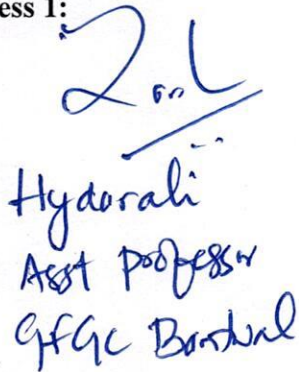 ess 1:
Hydarali
Asst professor
GFGC Bantwal